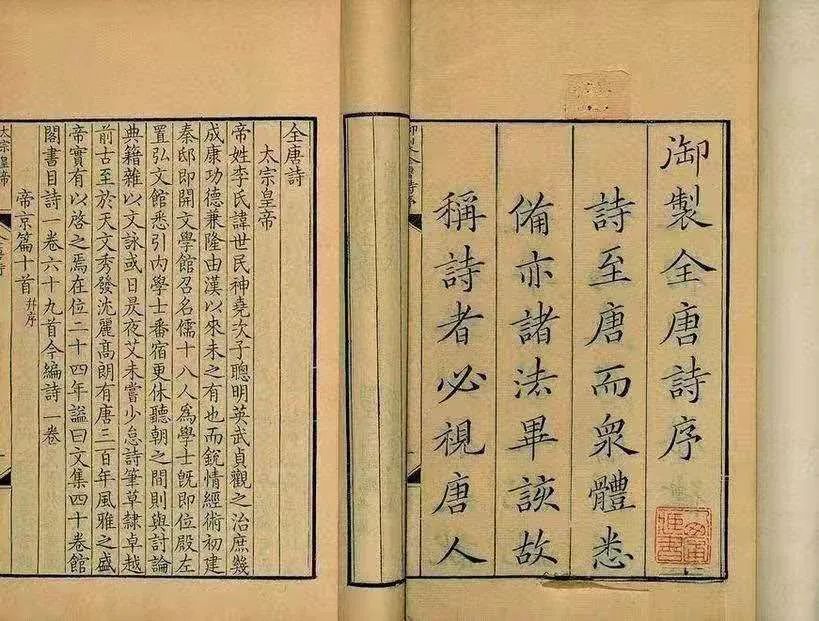 御製全唐詩序
詩至唐而眾體悉
備亦諸法畢該故
稱詩者必視唐人
全唐詩
太宗皇帝
帝姓李氏諱世民神堯次子聰明英武貞觀之治庶幾
成康功德兼隆由漢以來未之有也而銳情經術初建
秦邸即開文學館召名儒十八人為學士既即位殿左
置弘文館悉引內學士番宿更休聽朝之間則與討論
典籍雜以文詠或日昃夜艾未嘗少怠詩筆草隸卓越
前古至於天文秀發沈麗高朗有唐三百年風雅之盛
帝實有以啓之焉在位二十四年謚曰文集四十卷館
閣書目詩一卷六十九首今編詩一卷
帝京篇十首并序
太宗皇帝